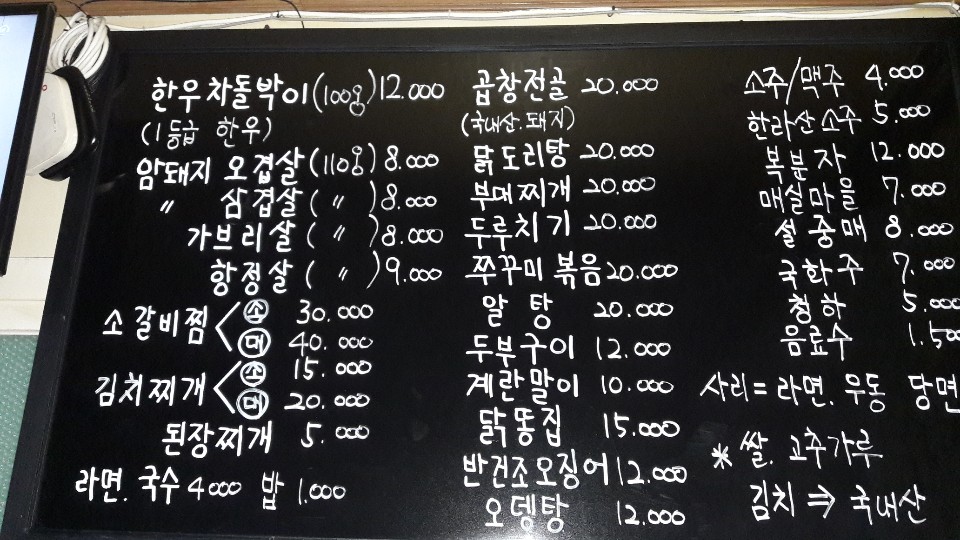 한우차돌박이(100g)12.000
(1등급 한우)
암돼지 오겹살(110g)8.000
〃 삼겹살( 〃 )8.000
가브리살( 〃 )8.000
항정살( 〃 )9.000
소갈비찜 소 30.000
대 40.000
김치찌개 소 15.000
대 20.000
된장찌개 5.000
라면.국수 4000 밥 1.000
곱창전골 20.000
(국내산.돼지)
닭도리탕 20.000
부대찌개 20.000
두루치기 20.000
쭈꾸미볶음 20.000
알탕 20.000
두부구이 12.000
계란말이 10.000
닭똥집 15.000
반건조오징어 12.000
오뎅탕 12.000
소주/맥주 4.000
한라산소주 5.000
복분자 12.000
매실마을 7.000
설중매 8.000
국화주 7.000
청하 5.000
음료수 1.500
사리=라면.우동 당면
* 쌀.고추가루
김치 ⇒ 국내산